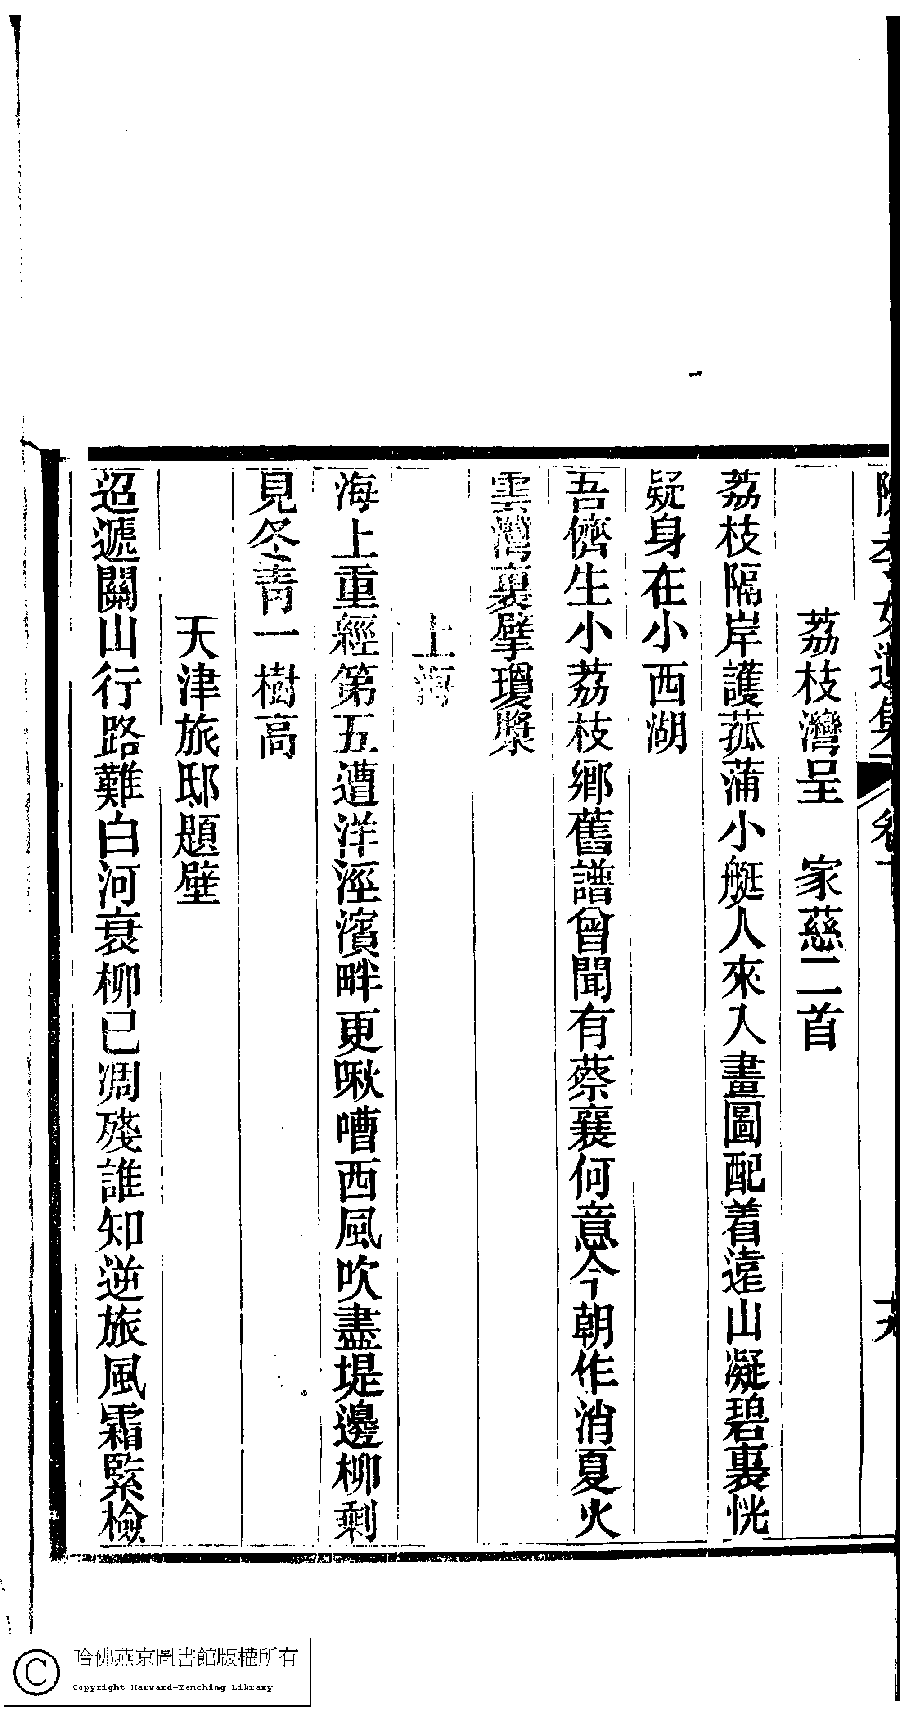 陳孝女遺集 卷一 十九
荔枝灣呈 家慈二首
荔枝隔岸護菰蒲小艇人來入畫圖配着遠山凝碧裏恍
疑身在小西湖
吾儕生小荔枝鄉舊譜曾聞有蔡襄何意今朝作消夏火
雲灣裏擘瓊漿
上海
海上重經第五遭洋涇濱畔更啾嘈西風吹盡堤邊柳剩
見冬青一樹高
天津旅邸題壁
迢遞關山行路難白河衰柳已凋殘誰知逆旅風霜緊檢
哈佛燕京圖書館版權所有
Copyright Harvard-Yenching Library